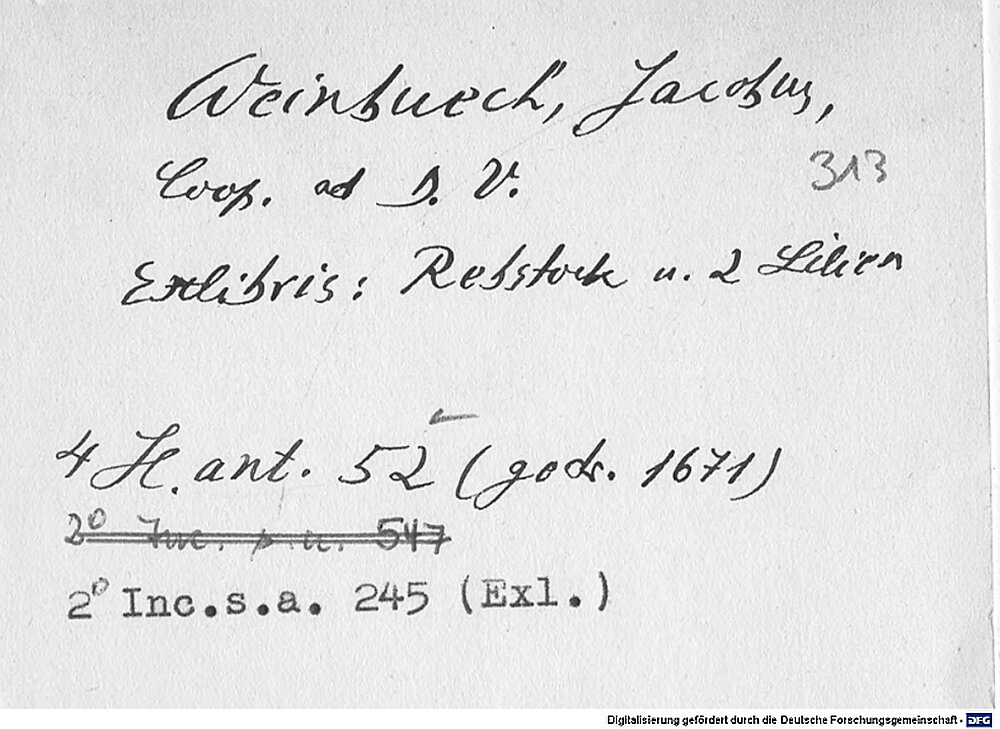 Weinbuech, Jacobus,
Coop. ad D. V.
313
Exlibris: Rebstock u. 2 Lilien
4 H. ant. 52 (gedr. 1671)
2° Inc. s.a. 547
2° Inc.s.a. 245 (Exl.)
Digitalisierung gefördert durch die Deutsche Forschungsgemeinschaft - DFG